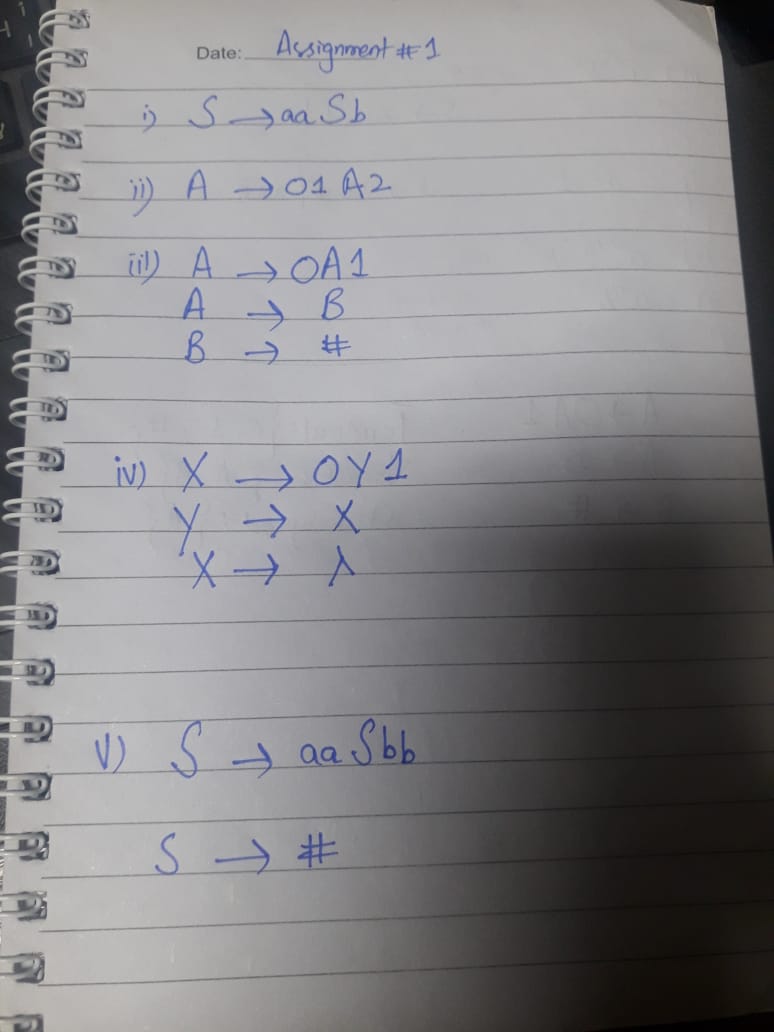 Date: Assignment # 1
i) S → aaSb
ii) A → 01A2
iii) A → 0A1
A → B
B → #
iv) X → 0Y1
Y → X
X → λ
V) S → aaSbb
S → #